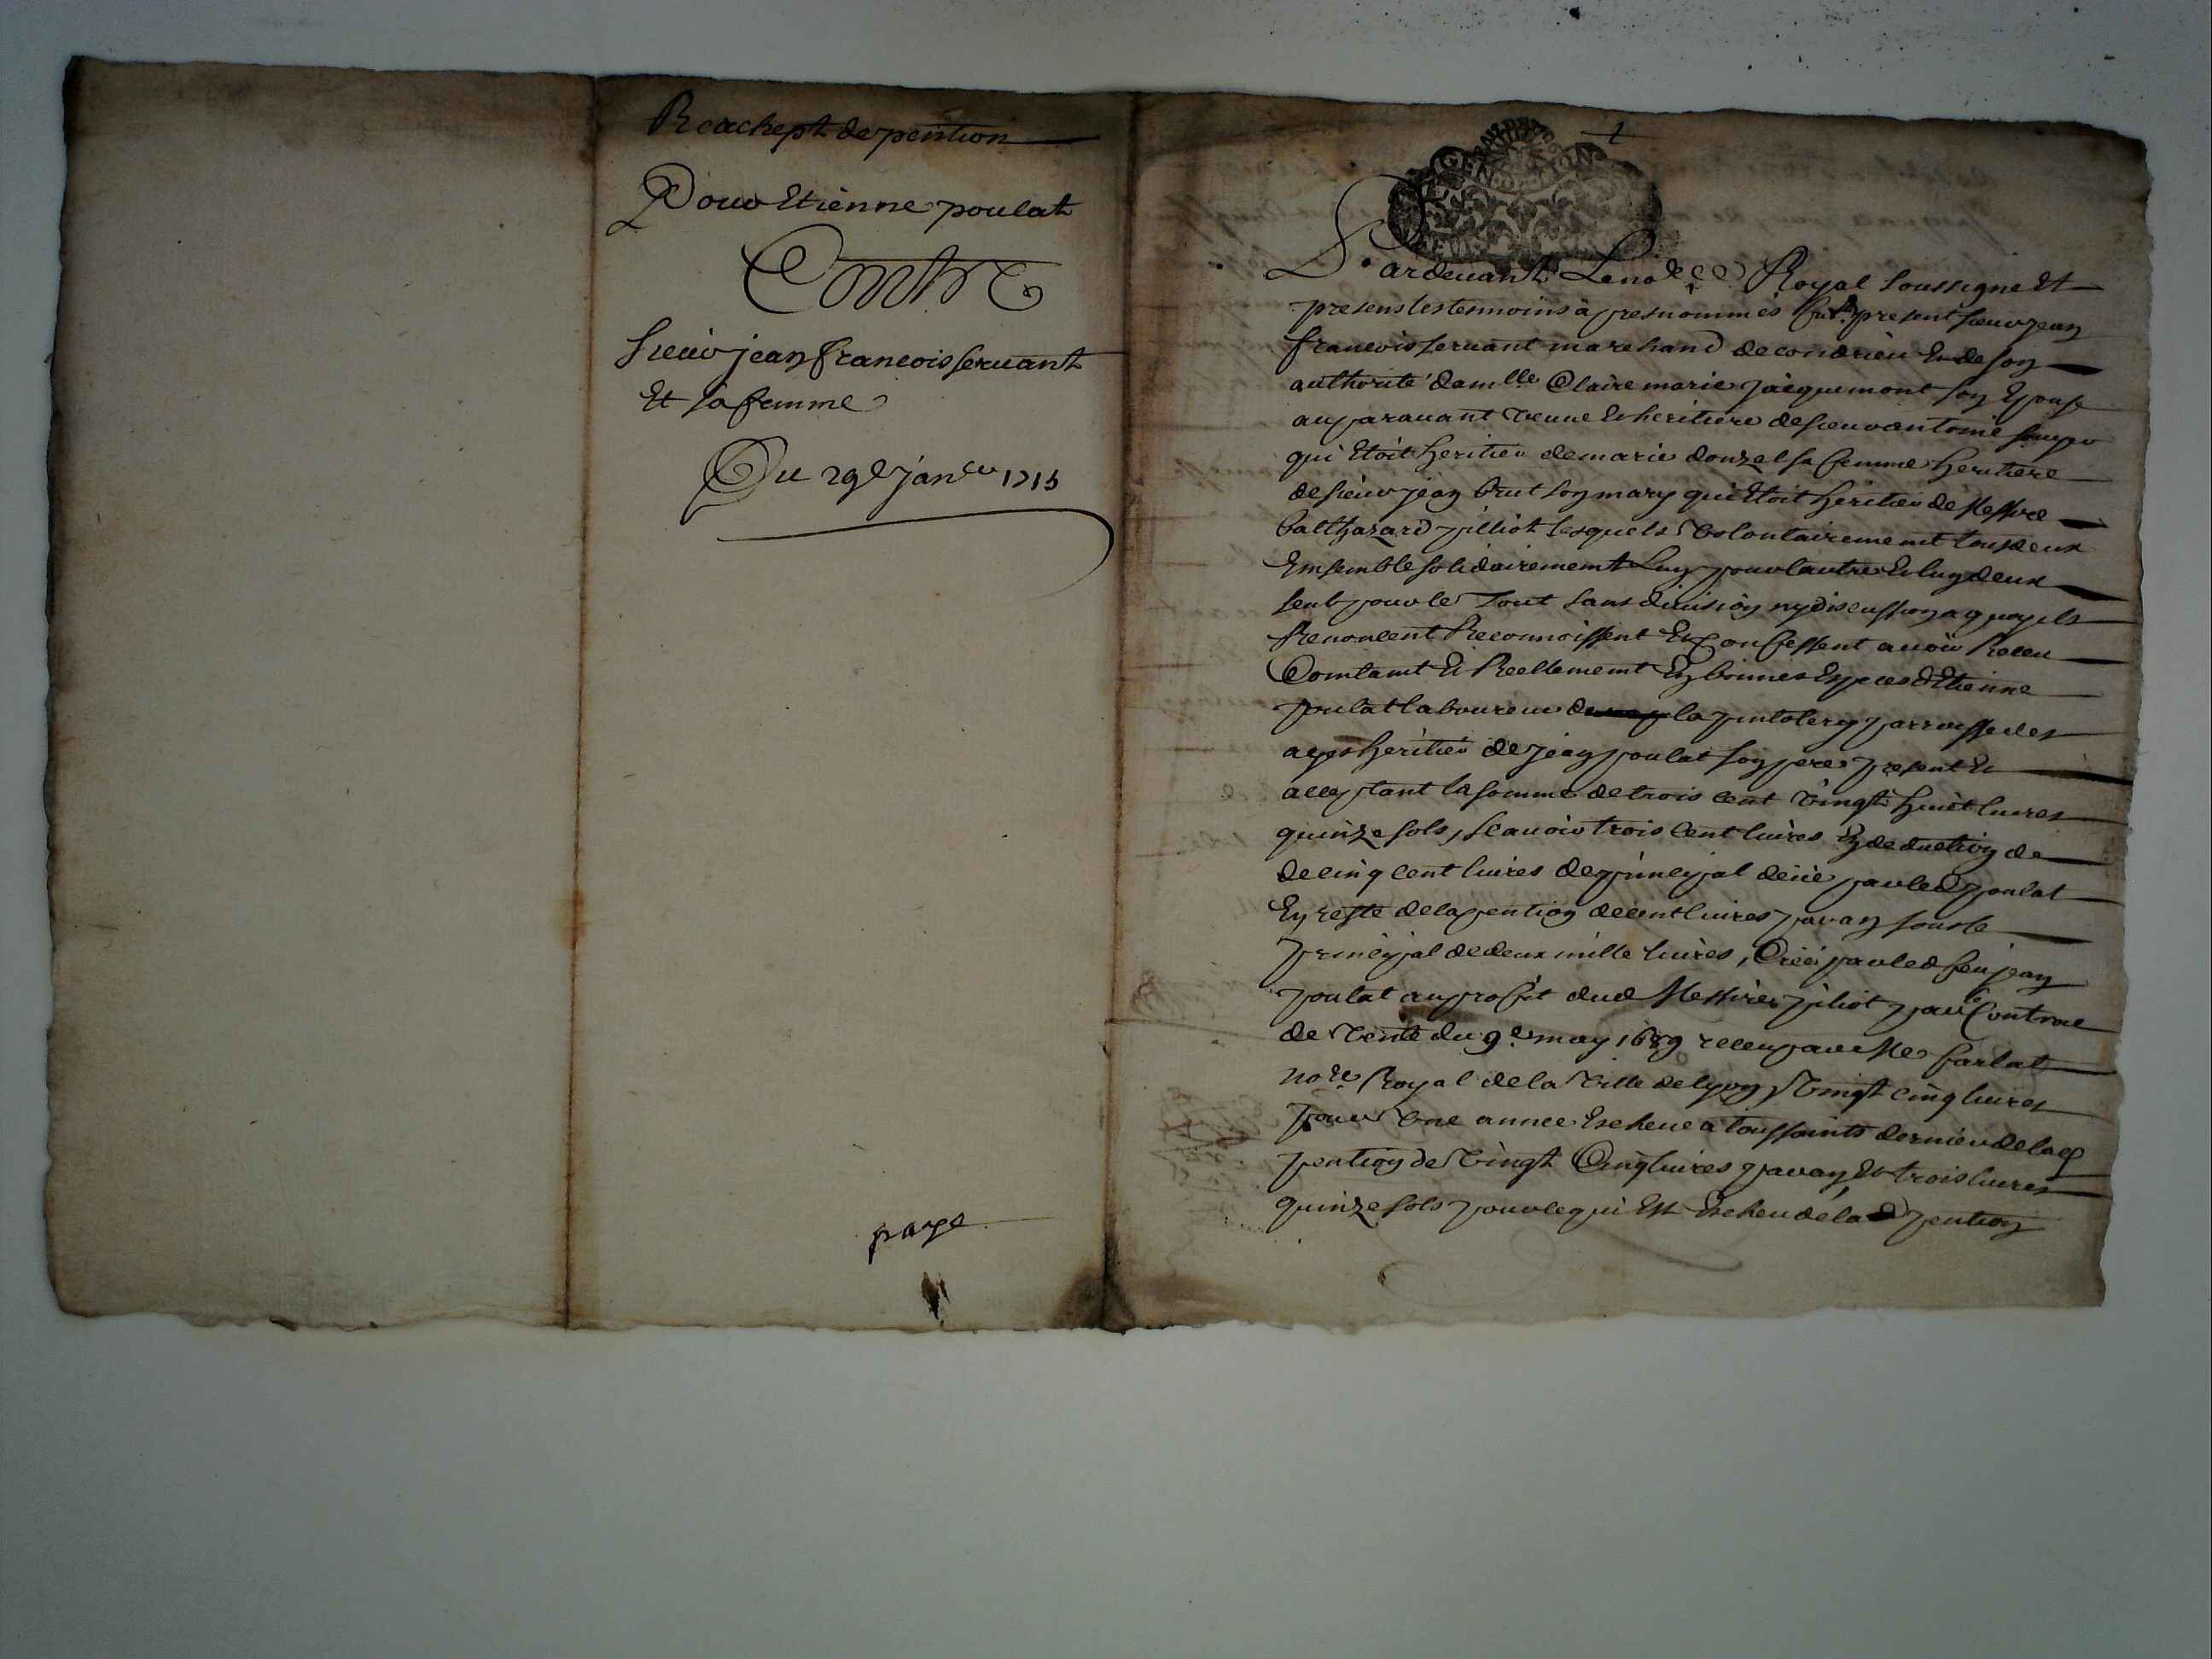 Reachept de pention
Pour Etienne poulat
Contre
Sieur jean francois servant
Et sa femme
Du 29e janer 1715
paye
1
Pardevant Le nore Royal soussigne Et
presens les tesmoins apres nommés fut present sieur jean
francois servant marchand de condrieu Et de son
authorité damlle Claire marie jacquemont son Epouse
auparavant veuve Et heritiere de sieur antoine
qui Etoit heritier de marie donzel sa femme heritiere
de sieur jean brut son mary qui Etoit heritier de Messire
balthazard pilliot lesquels volontairement tous deux
Ensemble solidairement Luy pour lautre Et luy deux
seul pour le tout sans division ny discussion a quoy ils
Renoncent Reconnoissent Et Confessent avoir Receu
Comtant Et Reellement En bonnes Especes d'Etienne
poulat laboureur de la parroisse des
ayes heritier de jean poulat son pere present Et
acceptant la somme de trois cent vingt huict livres
quinze sols, scavoir trois cent livres En deduction de
de cinq cent livres de principal deüe par led poulat
En reste de la pention de cent livres par an sous le
principal de deux mille livres, Creé par led feu jean
poulat au profit dud Messire piliot par Contrac
de vente du 9e may 1689 receu par Me farlat
nore Royal de la ville de lyon, vingt cinq livres
pour une annee Echeue a toussaints dernier de lad
pention de vingt Cinq livres par an, Et trois livres
quinze sols pour le qui Est Echeu de lad pention